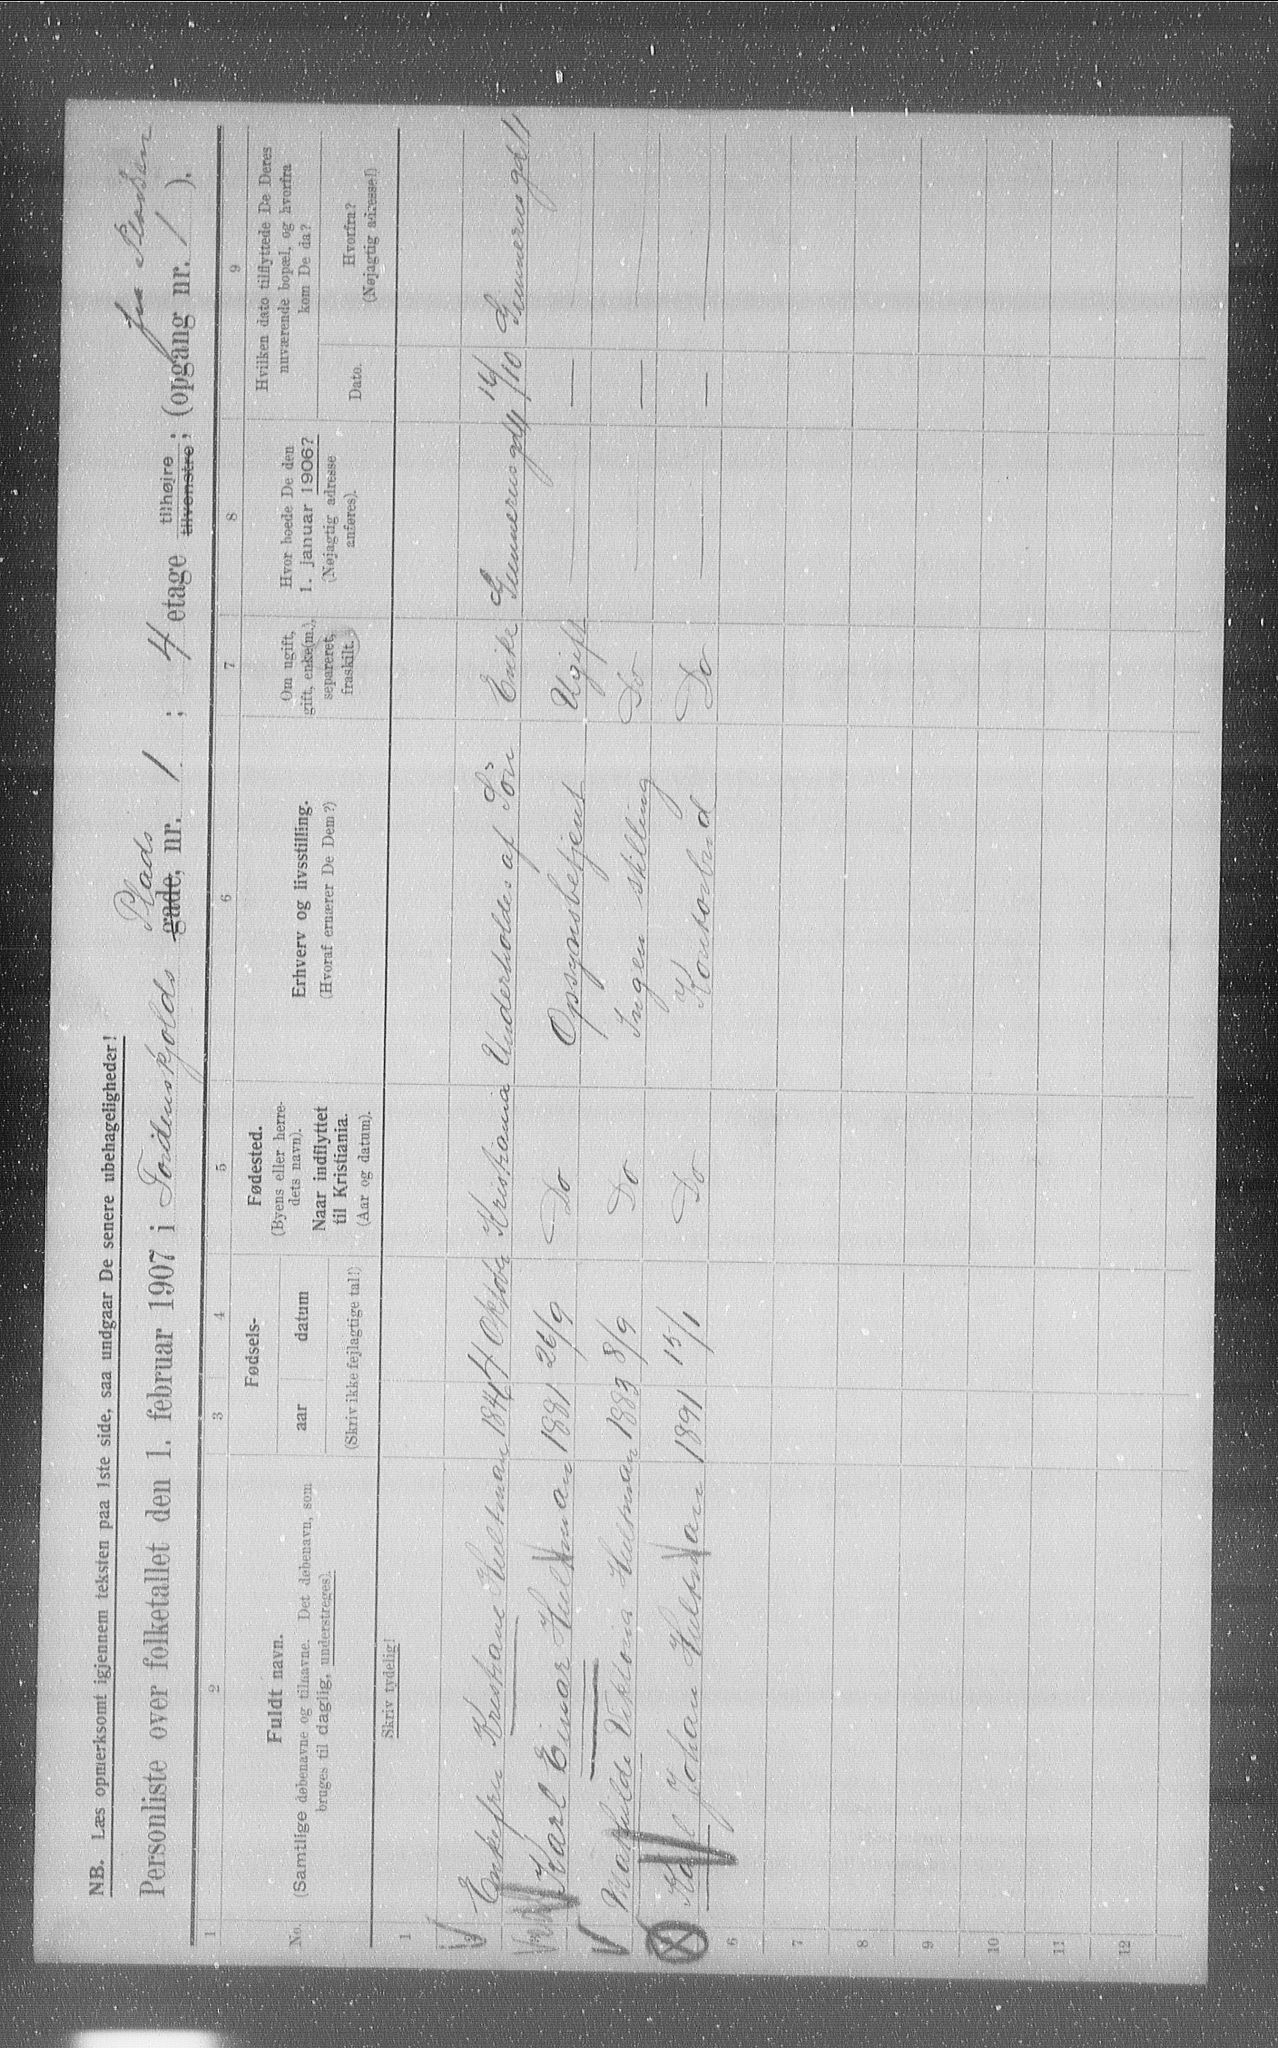 NB. Læs opmerksomt igjennem teksten paa 1ste side, saa undgaar De senere ubehageligheder!
fra Pladsen
Plads
Personliste over folketallet den 1. februar 1907 i Tordenskjolds gade, nr. 1 ; 4 etage tilhøire tilvenstre; (opgang nr. 1 ).
1 2 3 4 5 6 7 8 9
No.
Fuldt navn.
(Samtlige døbenavne og tilnavne. Det døbenavn, som
bruges til daglig, understreges).
Fødsels-
aar datum
(Skriv ikke fejlagtige tal!)
Fødested.
(Byens eller herre-
dets navn).
Naar indflyttet
til Kristiania.
(Aar og datum).
Erhverv og livsstilling.
(Hvoraf ernærer De Dem?)
Om ugift,
gift, enke(m.),
separeret,
fraskilt.
Hvor boede De den
1. januar 1906?
(Nøjagtig adresse
anføres).
Hvilken dato tilflyttede De Deres
nuværende bopæl, og hvorfra
kom De da?
Dato.
Hvorfra?
(Nøjagtig adresse!)
Skriv tydelig!
1
Enkefru Kristiane Hultman 1841 4 Oktober Kristiania Underholdes af Sön Enke Gunnerus gd 11 14/10 Gunnerus gd 11
Karl Einar Hultman 1881 26/9 Do Opsynsbetjent Ugift — — —
Mathilde Viktoria Hultman 1883 8/9 Do Ingen stilling Do — — —
Karl Johan Hultman 1891 15/1 Do Kontorbud Do — — —
6
7
8
9
10
11
12